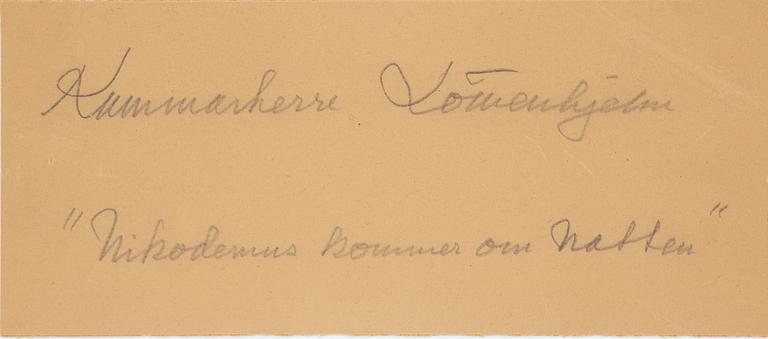 Kammarherre Löwenhjelm
"Nikodemus kommer om natten"